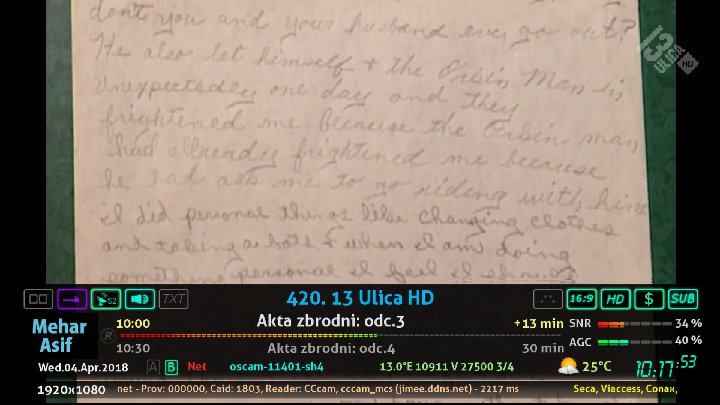 don't you and your husband ever go out?
He also let himself + the Orbin Man in
Unexpectedly one day and they
frightened me because the Orbin man
had allready frightened me because
he had ask me to go riding with him.
I did personal things like changing clothes
and taking a bath + when I am doing
something personal I feel I should
13 ULICA HD
S2
TXT
420. 13 Ulica HD
16:9
HD
$
SUB
Mehar
Asif
R
10:00
Akta zbrodni: odc.3
+13 min
SNR
34 %
10:30
Akta zbrodni: odc.4
30 min
AGC
40 %
Wed.04.Apr.2018
A
B
Net
oscam-11401-sh4
13.0°E 10911 V 27500 3/4
25°C
10:17:53
1920x1080
net - Prov: 000000, Caid: 1803, Reader: CCcam, cccam_mcs (jimee.ddns.net) - 2217 ms
Seca, Viaccess, Conax,